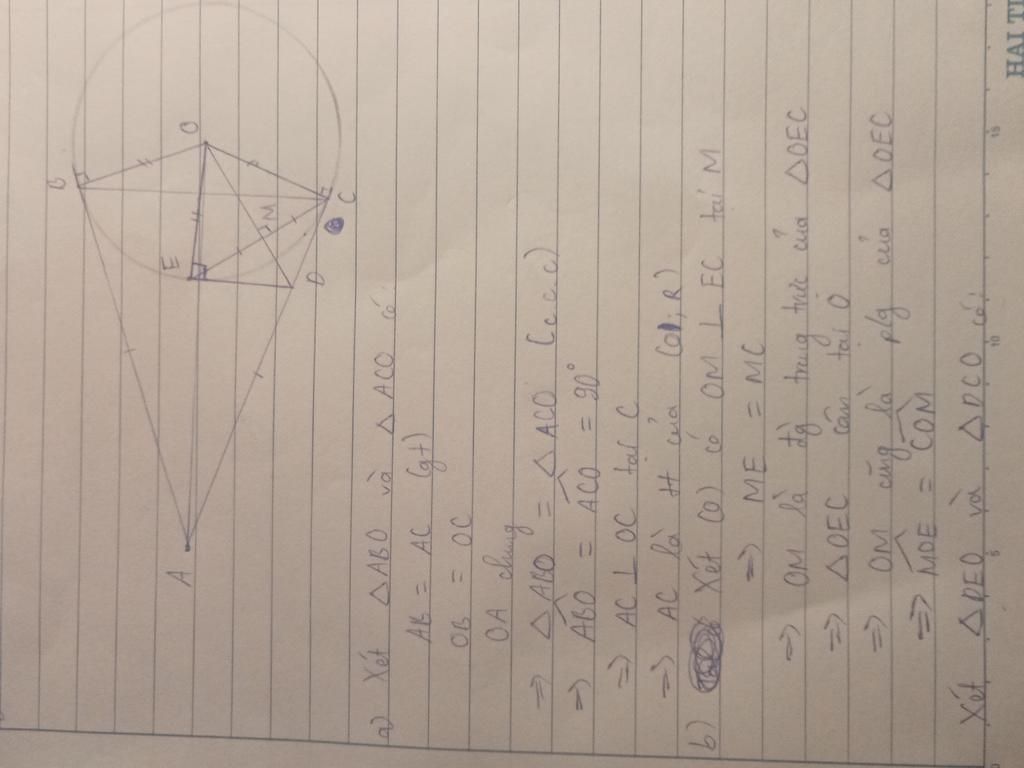 B
O
E
M
C
D
A
a) Xét △ABO và △ACO có:
AB = AC (gt)
OB = OC
OA chung
=> △ABO = △ACO (c.c.c)
=> ABO = ACO = 90°
=> AC ⊥ OC tại C
=> AC là tt của (O; R)
b) Xét (O) có OM ⊥ EC tại M
=> ME = MC
=> OM là đg trung trực của △OEC
=> △OEC cân tại O
=> OM cũng là p/g của △OEC
=> MOE = COM
Xét △DEO và △DCO có:
HAI TI
5
10
15